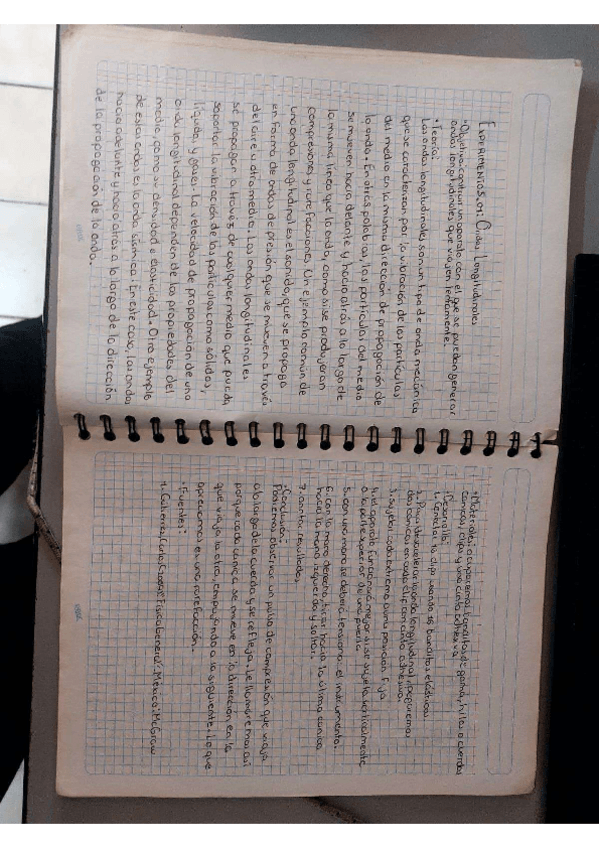 EXPERIMENTOS. 01: Ondas Longitudinales
•Objetivo: construir un aparato con el que se puedan generar
ondas longitudinales que viajen lentamente.
•Teoría:
Las ondas longitudinales son un tipo de onda mecánica
que se caracterizan por la vibración de las partículas
del medio en la misma dirección de propagación de
la onda. En otras palabras, las partículas del medio
se mueven hacia delante y hacia atrás a lo largo de
la misma línea que la onda, como si se produjeran
compresiones y rarefacciones. Un ejemplo común de
una onda longitudinal es el sonido, que se propaga
en forma de ondas de presión que se mueven a través
del aire u otro medio. Las ondas longitudinales
se propagan a través de cualquier medio que pueda
soportar la vibración de las partículas como sólidos,
líquidos y gases. La velocidad de propagación de una
onda longitudinal dependen de las propiedades del
medio, como su densidad y elasticidad. Otro ejemplo
de estas ondas es la onda sísmica. En este caso, las ondas
hacia adelante y hacia atrás a lo largo de la dirección
de la propagación de la onda.
•Materiales: ocuparemos banditas de goma, hilos o cuerdas
canicas, clips y una cinta adhesiva.
•Desarrollo:
1. Conectar 10 clips usando 10 banditas elásticas.
2. Para desacelerar la onda longitudinal, pegaremos
dos canicas en cada clip con cinta adhesiva.
3. Sujetar cada extremo a una posición fija
4. el aparato funcionará mejor si se sujeta verticalmente
a la parte superior de una puerta.
5. con una mano se deberá tensionar el instrumento.
6. Con la mano derecha, tirar hacia la última canica
hacia la mano izquierda y soltar.
7. anotar resultados.
•Conclusión:
Podremos observar un pulso de compresión que viaja
a lo largo de la cuerda y se refleja. Le llamaremos así
porque cada canica se mueve en la dirección en la
que viaja la otra, empujando a la siguiente. Lo que
apreciamos es una rarefacción.
•Fuentes:
1. Gutierrez, Carlos (2009). "Física General". México: McGraw